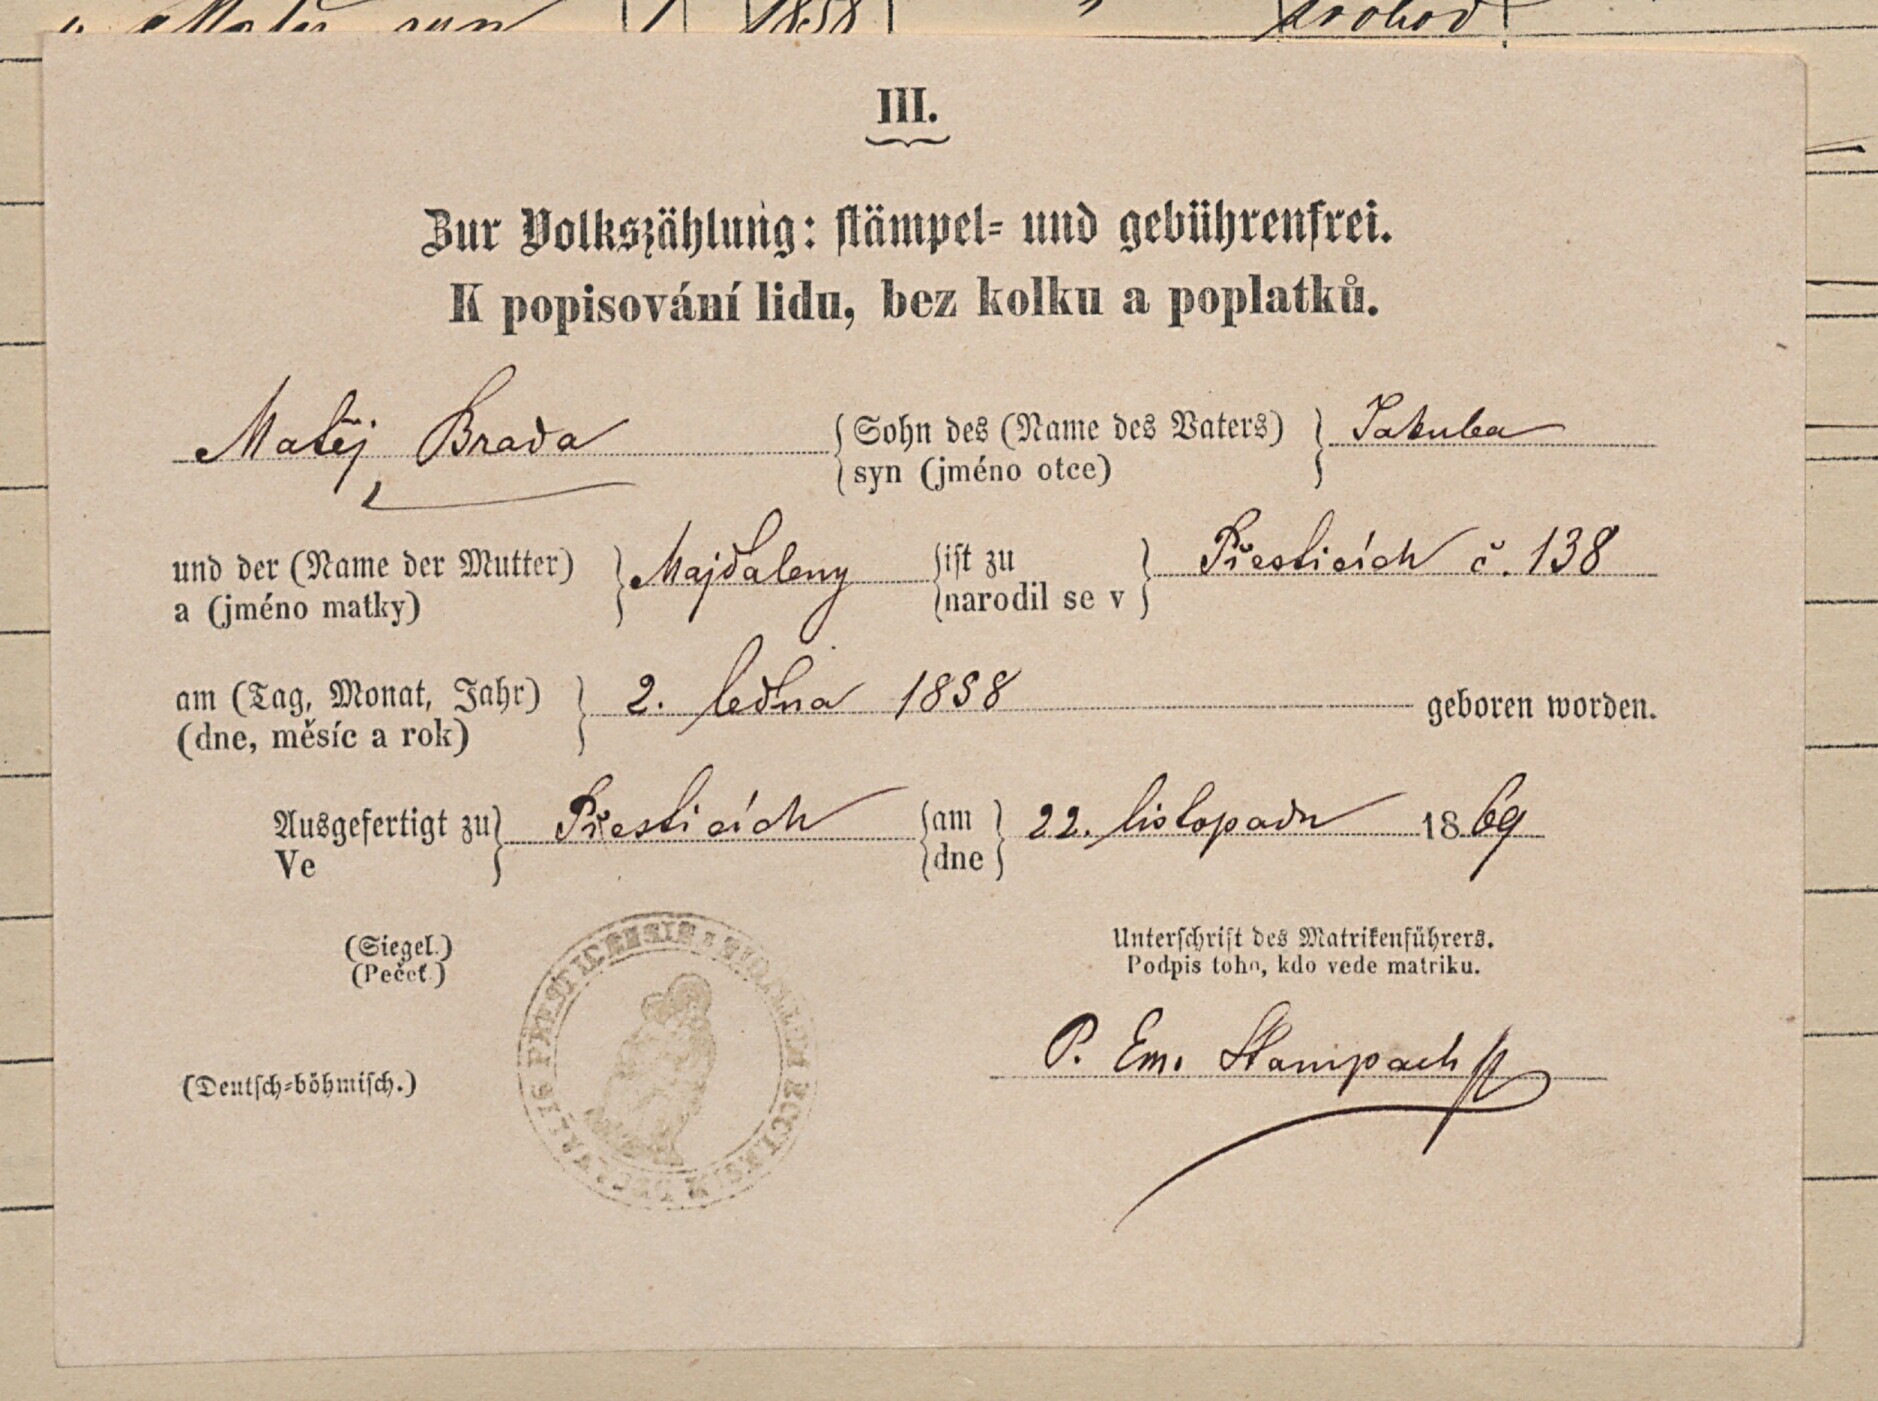 Matěj syn 1 1858 " svobod
III.
Zur Volkszählung: stämpel- und gebührenfrei.
K popisování lidu, bez kolku a poplatků.
Matěj Brada { Sohn des (Name des Vaters) } Jakuba
syn (jméno otce)
und der (Name der Mutter) } Majdaleny { ist zu } Přesticích č. 138
a (jméno matky) narodil se v
am (Tag, Monat, Jahr) } 2. ledna 1858 geboren worden.
(dne, měsíc a rok)
Ausgefertigt zu } Přesticích { am } 22. listopadu 1869
Ve dne
(Siegel.) Unterschrift des Matrikenführers.
(Pečeť.) Podpis toho, kdo vede matriku.
P. Em. Stampach
(Deutsch-böhmisch.)
PRESTICENSIS